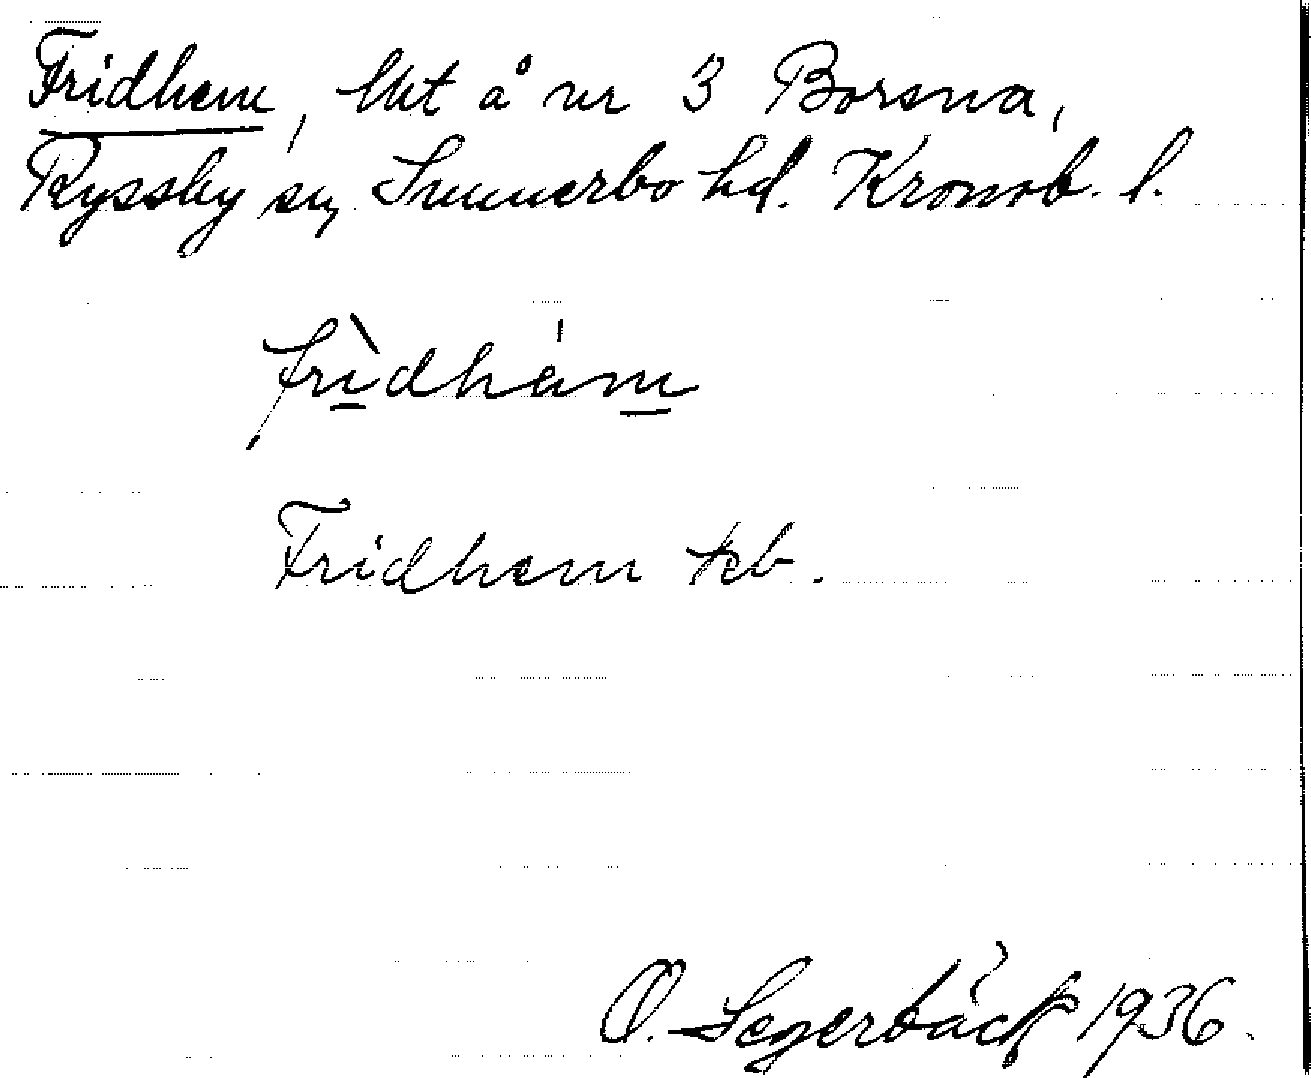 Fridhem, lht å nr 3 Borsna,
Ryssby sn, Sunnerbo hd. Kronob. l.
fri̱dhàm̱
Fridhem teb.
O. Segerbäck 1936.